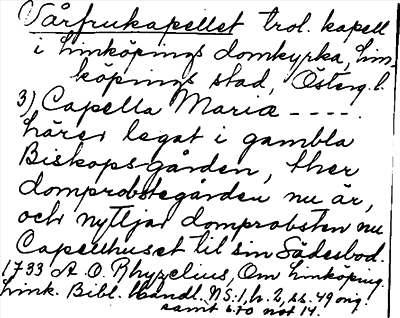 Vårfrukapellet trol. kapell
i Linköpings domkyrka, Lin-
köpings stad, Österg. l.
3) Capella Mariæ ----.
härer legat i gambla
Biskopsgården, ther
domprobstegården nu är,
och nyttjar domprobsten nu
Capellhuset til sin Sädesbod.
1733 A. O. Rhyzelius, Om Linköping.
Link. Bibl. Handl. NS:1, h. 2, ss. 49 orig.
samt s. 70 not 14.